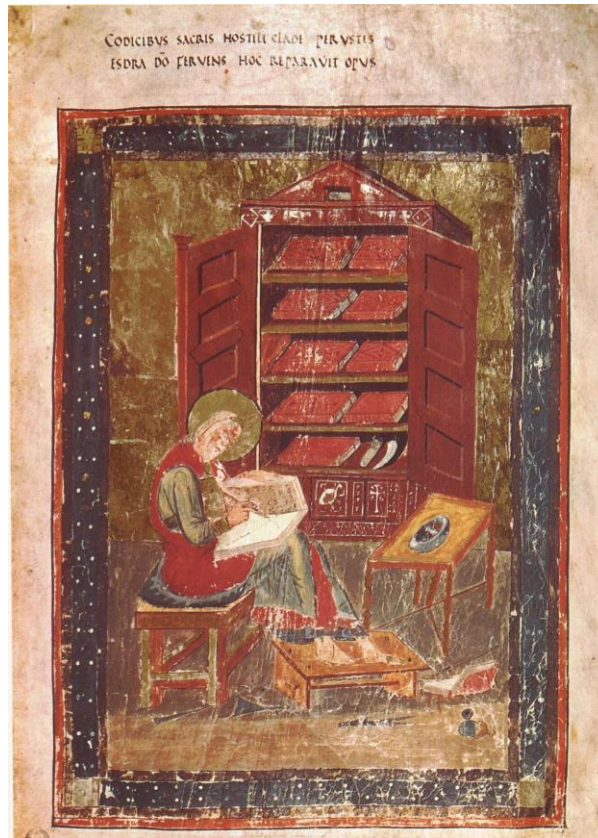 CODICIBUS SACRIS HOSTILI CLADE PERUSTIS
ESDRA DŌ FERUENS HOC REPARAUIT OPUS